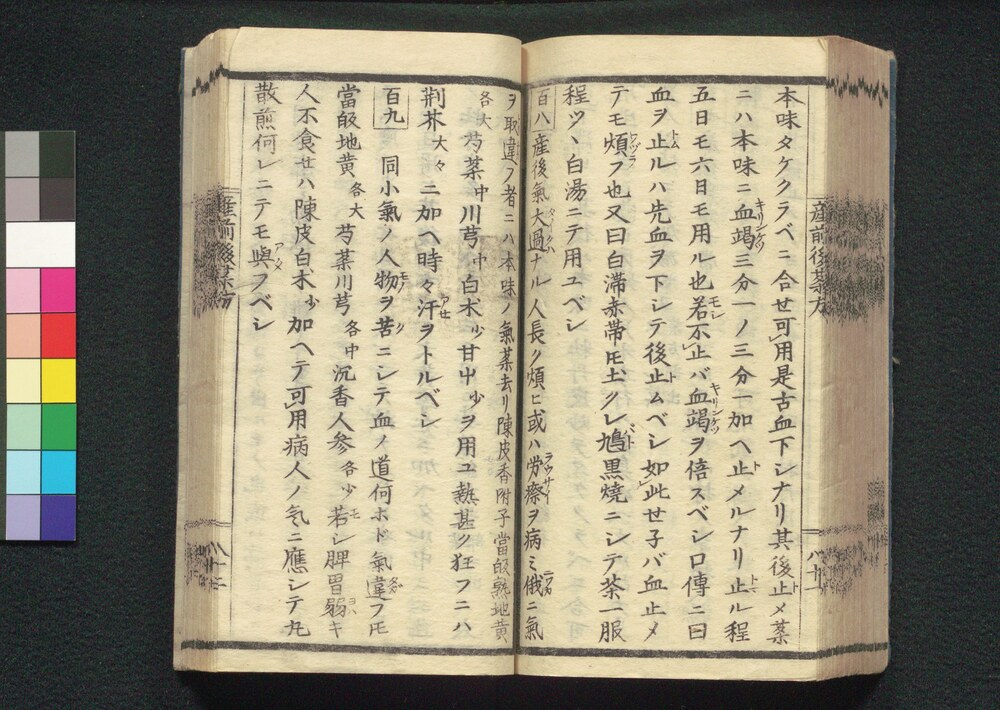 本味タケクラベニ合セ可用是古血下シナリ其後止メ薬
ニハ本味ニ血竭三分一ノ三分一加ヘ止メルナリ止ル程
五日モ六日モ用ル也若不止バ血竭ヲ倍スベシ口傳ニ曰
血ヲ止ルハ先血ヲ下シテ後止ムベシ如此セ子バ血止メ
テモ煩フ也又曰白滞赤帯ニハ土クレ鳩黒焼ニシテ茶一服
程ツヽ白湯ニテ用ユベシ
百八 産後氣大過ナル人長ク煩ヒ或ハ労瘵ヲ病ミ俄ニ氣
ヲ取違フ者ニハ本味ノ氣薬去リ陳皮香附子當皈熟地黄
各大芍薬中川芎中白朮少甘中少ヲ用ユ熱甚ク狂フニハ
荆芥大々ニ加ヘ時々汗ヲトルベシ
百九 同小氣ノ人物ヲ苦ニシテ血ノ道何ホド氣違フ𪜈
當皈地黄各大芍薬川芎各中沉香人参各少若シ脾胃弱キ
人不食セハ陳皮白朮少加ヘテ可用病人ノ氣ニ應シテ丸
散煎何レニテモ與フベシ
産前後薬方
八十一
産前後薬方
八十二